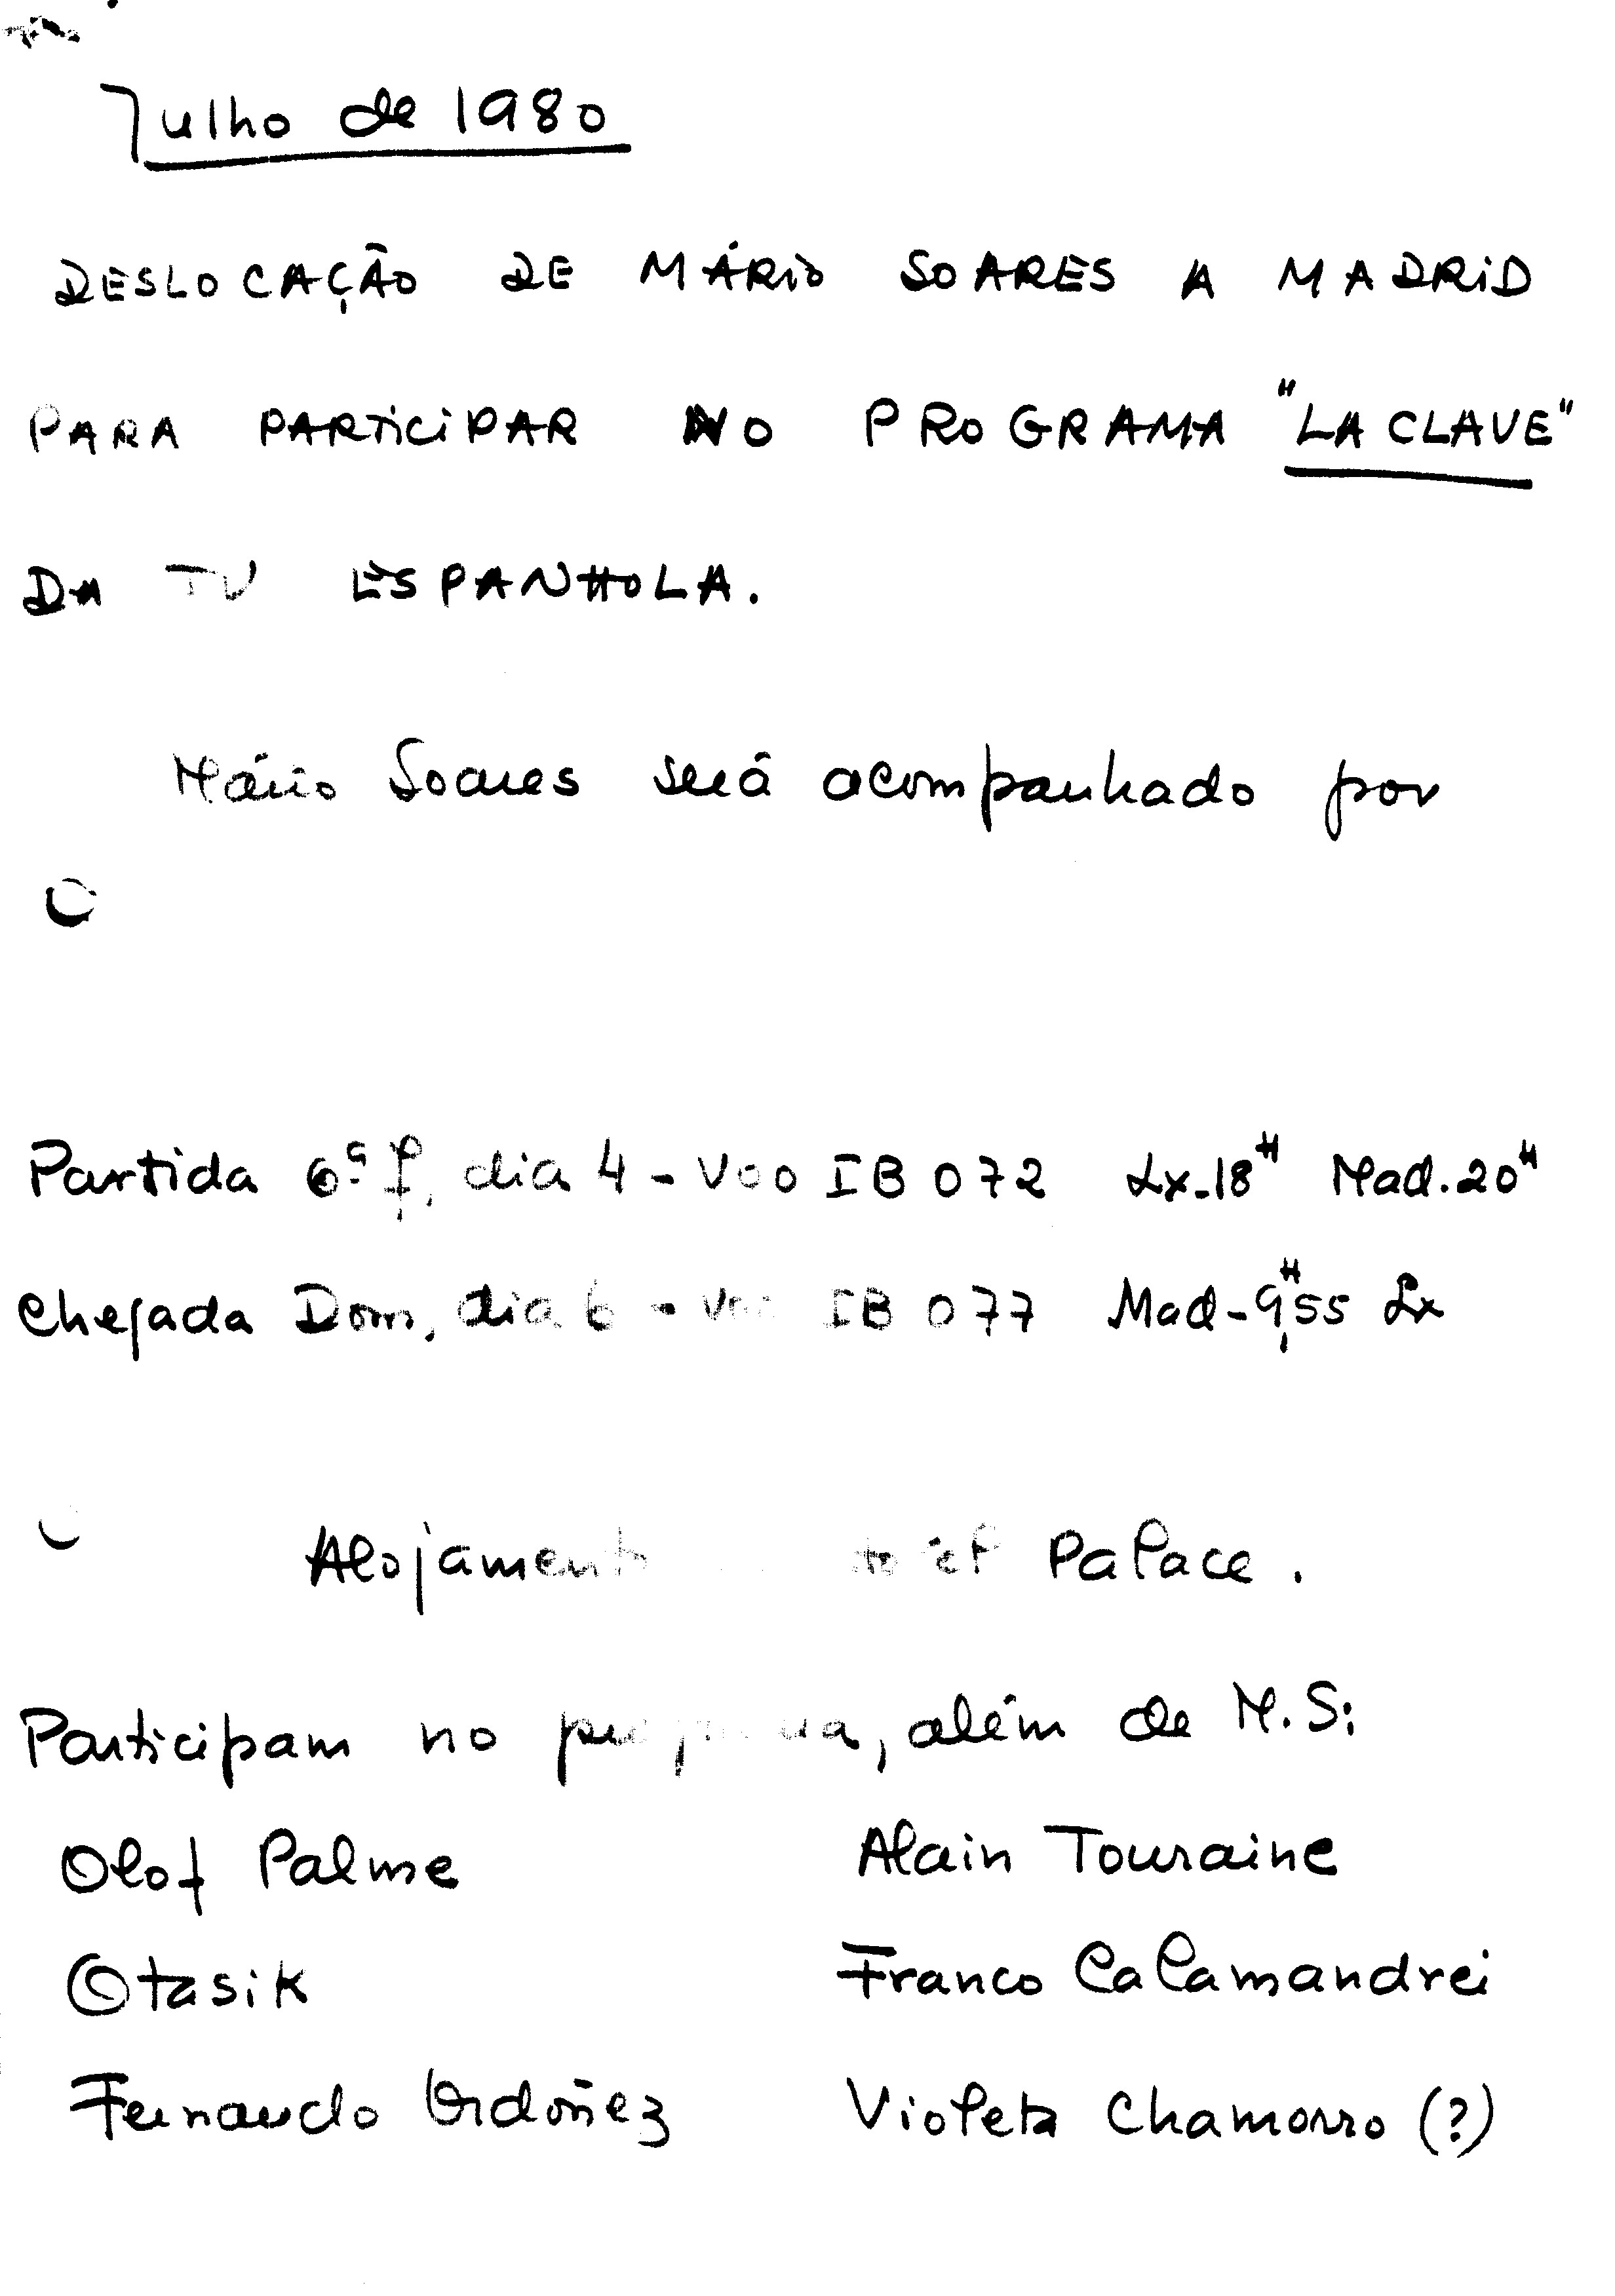 Julho de 1980
DESLOCAÇÃO DE MÁRIO SOARES A MADRID
PARA PARTICIPAR NO PROGRAMA "LA CLAVE"
DA TV ESPANHOLA.
Mário Soares será acompanhado por
Partida 6ª f, dia 4 - Voo IB 072 Lx-18H Mad.20H
Chegada Dom, dia 6 - Voo IB 077 Mad-9H,55 Lx
Alojamento Hotel Palace.
Participam no programa, além de M.S:
Olof Palme Alain Touraine
Otasik Franco Calamandrei
Fernando Ordoñez Violeta Chamorro (?)